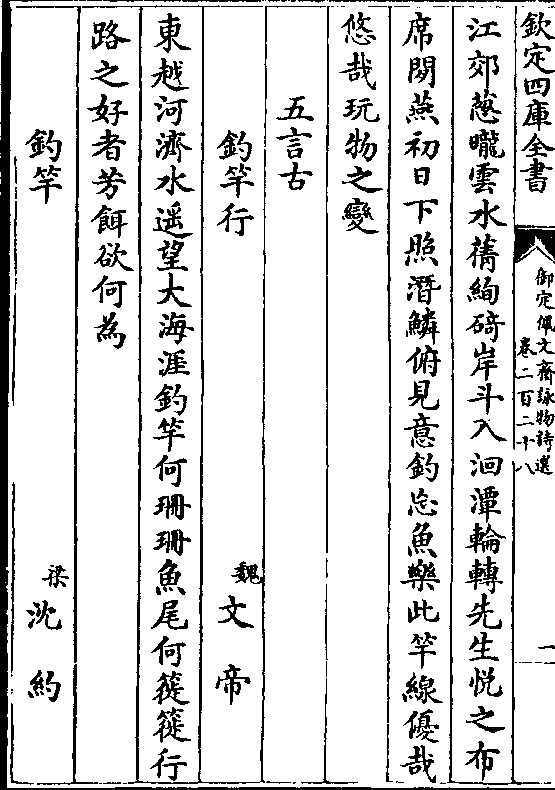 欽定四庫全書
御定佩文齋詠物詩選
卷二百二十八
一
江郊葱曨雲水蒨絢碕岸斗入洄潭輪轉先生悅之布
席閒燕初日下照潛鱗俯見意釣忘魚樂此竿線優哉
悠哉玩物之變
五言古
釣竿行 魏文帝
東越河濟水遥望大海涯釣竿何珊珊魚尾何簁簁行
路之好者芳餌欲何為
釣竿 梁沈約